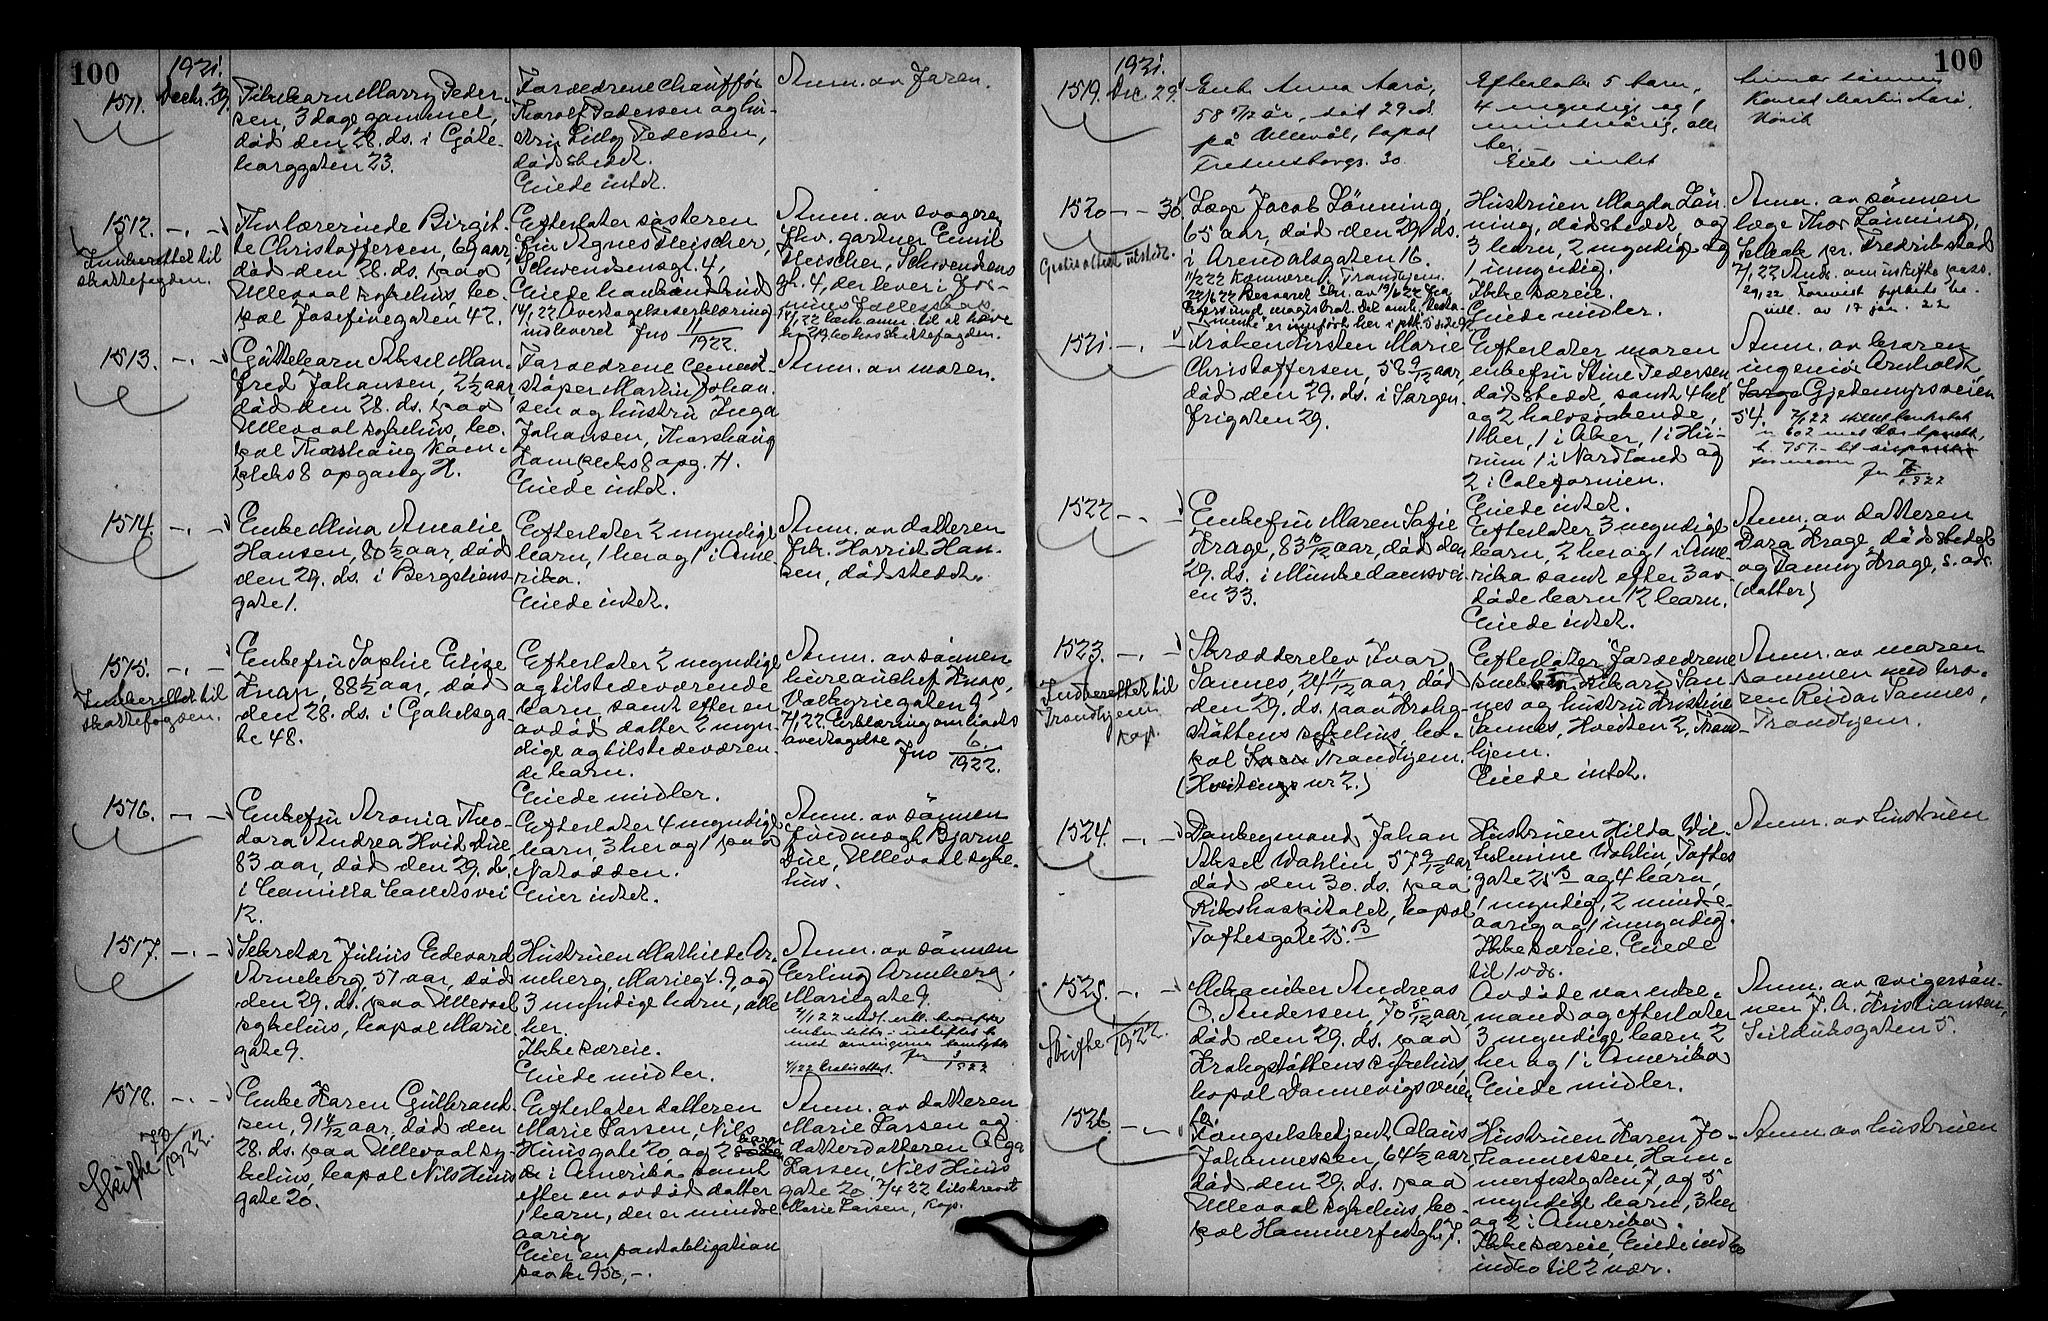 100
1921.
1511. Decbr. 29.
Pikebarn Marry Peder-
sen, 3 dage gammel,
død den 28. ds. i Gøte-
borggaten 23.
Forældrene chauffør
Thorolf Pedersen og hu-
stru Lilly Pedersen,
dødstedet.
Eiede intet.
Anm. av faren.
1512. —.—
Innberettet til
skattefogden.
Fhv. lærerinde Birgit-
te Christoffersen, 69 aar,
død den 28. ds. paa
Ullevaal sykehus, bo-
pæl Josefinegaten 42.
Efterlater søsteren
fru Agnes Fleischer,
Schwendsensgt. 4,
14/1 22 Overtagelseserklæring
innleveret Jno 11/1922.
Anm. av svogeren
fhv. gartner Emil
Fleischer, Schwendsens
gt. 4, der lever i
1513. —.—
Guttebarn Aksel Man-
fred Johansen, 2 1/2 aar,
død den 28. ds. paa
Ullevaal sykehus, bo-
pæl Thorshaug Kom.
pleks 8 opgang H.
Forældrene cement-
støper Martin Johan-
sen og hustru Inga
Johansen, Thorshaug
Kompleks 8 opg. H.
Eiede intet.
Anm. av moren.
1514. —.—
Enke Mina Amalie
Hansen, 80 1/2 aar, død
den 29. ds. i Bergsliens-
gate 1.
Efterlater 2 myndige
barn, 1 her og 1 i Ame-
rika.
Eiede intet.
Anm. av datteren
frk. Harriet Han-
sen, dødstedet.
1515. —.—
Innberettet til
skattefogden.
Enkefru Sophie Elise
Knap, 88 1/2 aar, død
den 28. ds. i Gabelsga-
te 48.
Efterlater 2 myndige
og tilstedeværende
barn, samt efter en
avdød datter 2 myn-
dige og tilstedeværen-
de barn.
Eiede midler.
Anm. av sønnen
bureauchef Knap,
Valkyriegaten 9.
7/1 22. Erklæring om boets
overtagelse
Jno 6/1922.
1516. —.—
Enkefru Aronia Theo-
dora Andrea Hvid Due,
83 aar, død den 29. ds.
i Camilla Colletsvei
12.
Efterlater 4 myndige
barn, 3 her og 1 paa
Notodden.
Eier intet.
Anm. av sønnen
fuldmægt. Bjarne
Due, Ullevaal syke-
hus.
1517. —.—
Sekretær Julius Edevard
Arneberg, 57 aar, død
den 29. ds. paa Ullevaal
sykehus, bopæl Marie
gate 9.
Hustruen Mathilde Ar-
neberg, Mariegt. 9, og
3 myndige barn, alle
her.
Ikke særeie.
Eiede midler.
Anm. av sønnen
Erling Arneberg,
Mariegate 9.
1518. —.—
Skifte 73/1922.
Enke Karen Gulbrand-
sen, 91 4/12 aar, død den
28. ds. paa Ullevaal sy-
kehus, bopæl Nils Huus
gate 20.
Efterlater datteren
Marie Larsen, Nils
Huusgate 20, og 2 barn
i Amerika samt
efter en avdød datter
1 barn, der er mindre
aarig
Eier en pantobligation
paa kr 950,-.
Anm. av datteren
Marie Larsen og
datterdatteren Olga
Larsen, Nils Huus
gate 20. 7/4 22 tilskrevet
Marie Larsen, Kap.
100
1921.
1519. Dec. 29.
Enke Anna Aarø,
58 5/12 år, død 29 ds
på Ullevål, bopæl
Fredensborgv. 30
Efterlater 5 barn,
4 myndige og 1
mindreårig, alle
her.
Eiede intet
Anm av sønnen
Konrad Martin Aarø,
Høvik
1520 —.— 30.
Gratisattest utstedt.
Læge Jacob Lønning,
65 aar, død den 29. ds.
i Arendalsgaten 16.
Hustruen Magda Løn-
ning, dødstedet, og
3 barn, 2 myndige og
1 umyndig.
Ikke særeie.
Eiede midler.
Anm. av sønnen
læge Thor Lønning,
Selbak pr. Fredrikstad
1521. —.—
Frøken Kirsten Marie
Christoffersen, 58 9/12 aar,
død den 29. ds. i Sorgen-
frigaten 29.
Efterlater moren
enkefru Stine Pedersen
dødstedet, samt 4 hel
og 2 halvsøskende,
1 her, 1 i Aker, 1 i Hu-
rum, 1 i Nordland og
2 i Californien.
Eiede intet.
Anm. av broren
ingeniør Arnholdt,
Gjetemyrsveien
54.
1522 —.—
Enkefru Maren Sofie
Krage, 83 10/12 aar, død den
29. ds. i Munkedamsvei-
en 33.
Efterlater 3 myndige
barn, 2 her og 1 i Ame-
rika samt efter 3 av-
døde barn 12 barn.
Eiede intet.
Anm. av datteren
Dora Krage, dødstedet
og Fanny Krage, s. ad.
(datter)
1523. —.—
Indberettet til
Trondhjem
Kap.
Skrædderelev Ivar
Sannes, 24 11/12 aar, død
den 29. ds. paa Krohg-
støttens sykehus, bo-
pæl Trondhjem.
(Hveitengt nr 2.)
Efterlater forældrene
Rikard San-
nes og hustru Kristine
Sannes, Hveiten 2, Trond-
hjem.
Eiede intet.
Anm. av moren
sammen med bro-
ren Reidar Sannes,
Trondhjem.
1524. —.—
Banksymand Johan
Aksel Wahlin 57 2/12 aar,
død den 30. ds. paa
Rikshospitalet, bopæl
Toftesgate 25 B
Hustruen Hilda Wil-
helmine Wahlin, Toftes
gate 25 B og 4 barn,
1 myndig, 2 mindre-
aarig og 1 umyndig.
Ikke særeie. Eiede
til 1 vdr.
Anm. av hustruen
1525. —.—
Skifte /1922.
Mekaniker Andreas
O. Andersen, 70 5/12 aar,
død den 29. ds. paa
Krohgstøttens sykehus,
bopæl Dannevigsveien
Avdøde var enke-
mand og efterlater
3 myndige barn, 2
her og 1 i Amerika
Eiede midler.
Anm. av svigersøn-
nen J. A. Kristiansen,
Seilduksgaten 5.
1526. —.—
Fængselsbetjent Olaus
Johannessen, 64 1/2 aar,
død den 29. ds. paa
Ullevaal sykehus, bo-
pæl Hammerfestgt. 7.
Hustruen Karen Jo-
hannessen, Ham-
merfestgaten 7, og 5
myndige barn, 3 her
og 2 i Amerika.
Ikke særeie, Eiede indbo
til 2 vær.
Anm. av hustruen